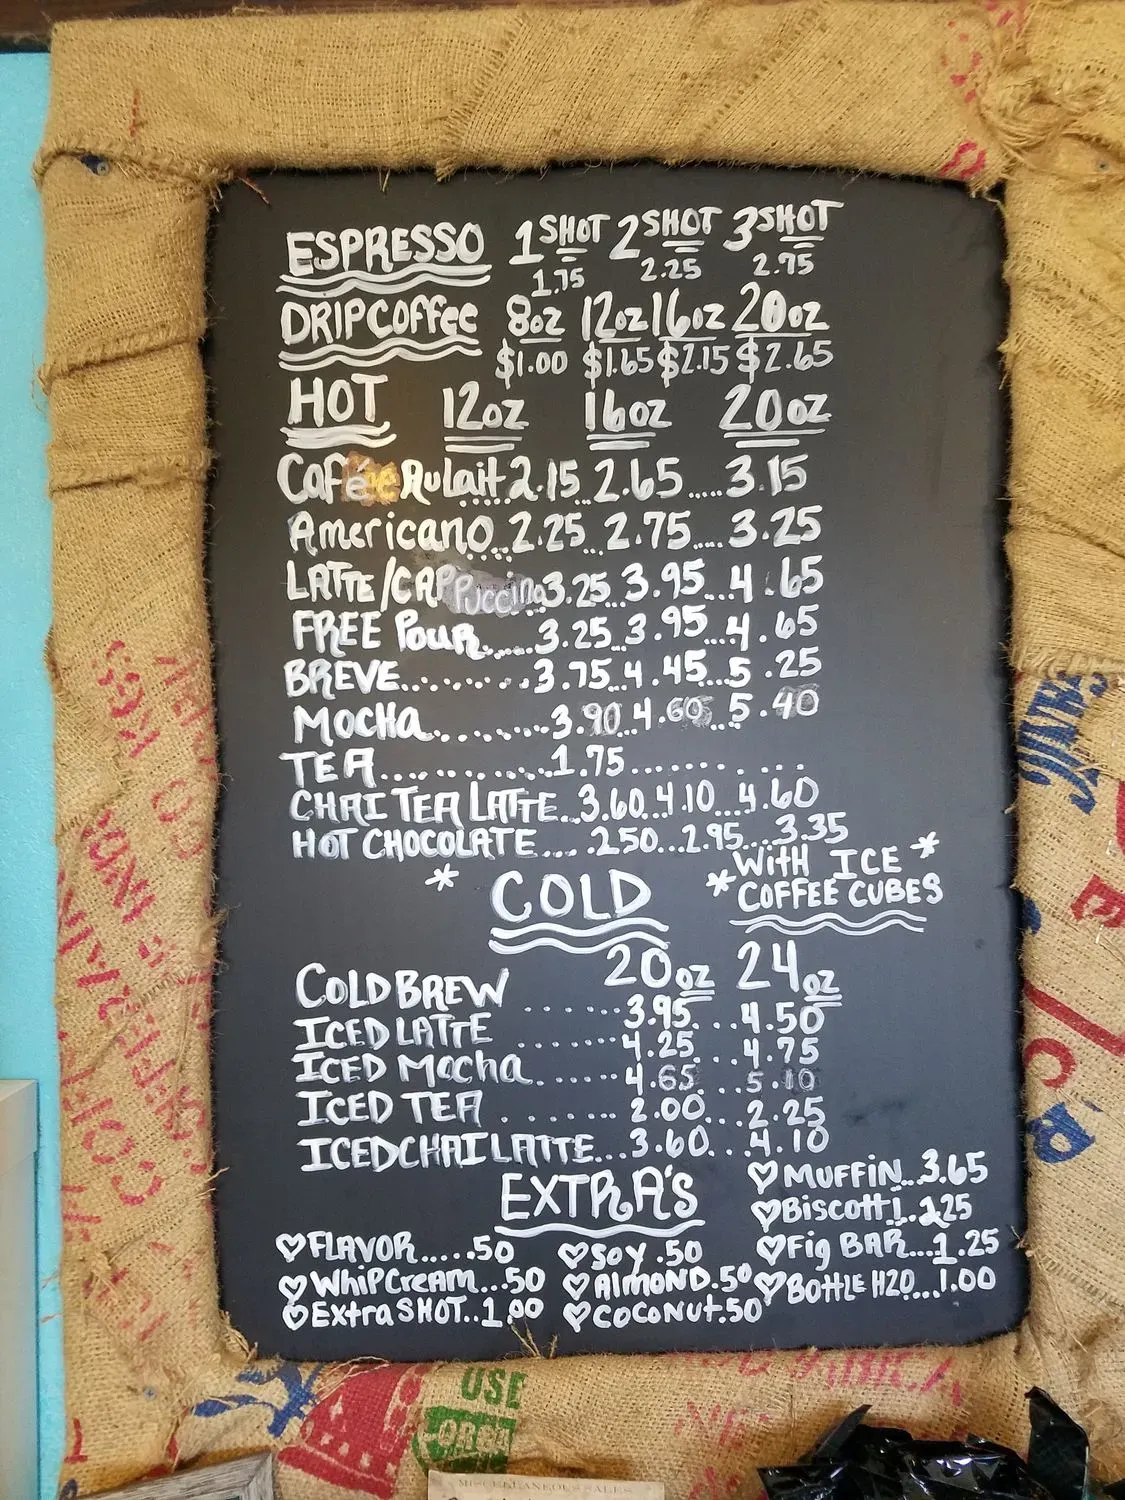 ESPRESSO 1 SHOT 2 SHOT 3 SHOT
1.75 2.25 2.75
DRIP COFFEE 8oz 12oz 16oz 20oz
$1.00 $1.65 $2.15 $2.65
HOT 12oz 16oz 20oz
Café Au Lait 2.15...2.65.....3.15
Americano...2.25...2.75....3.25
LATTE/CAPPuccino 3.25...3.95...4.65
FREE POUR......3.25...3.95...4.65
BREVE.........3.75...4.45...5.25
MOCHA........3.90...4.60...5.40
TEA............1.75...........
CHAI TEA LATTE...3.60...4.10...4.60
HOT CHOCOLATE....2.50...2.95...3.35
* COLD *WITH ICE*
COFFEE CUBES
20oz 24oz
COLD BREW ......3.95...4.50
ICED LATTE .......4.25...4.75
ICED Mocha.......4.65...5.10
ICED TEA .......2.00...2.25
ICED CHAI LATTE...3.60...4.10
EXTRA'S
♡FLAVOR.....50
♡WHIPCREAM...50
♡EXtra SHOT..1.00
♡SOY.50
♡AlMOND.50
♡COCONUT.50
♡MUFFIN...3.65
♡Biscotti
♡Fig BAR....1.25
♡BOTTLE H2O....1.00
USE
MISCELLANEOUS SALES